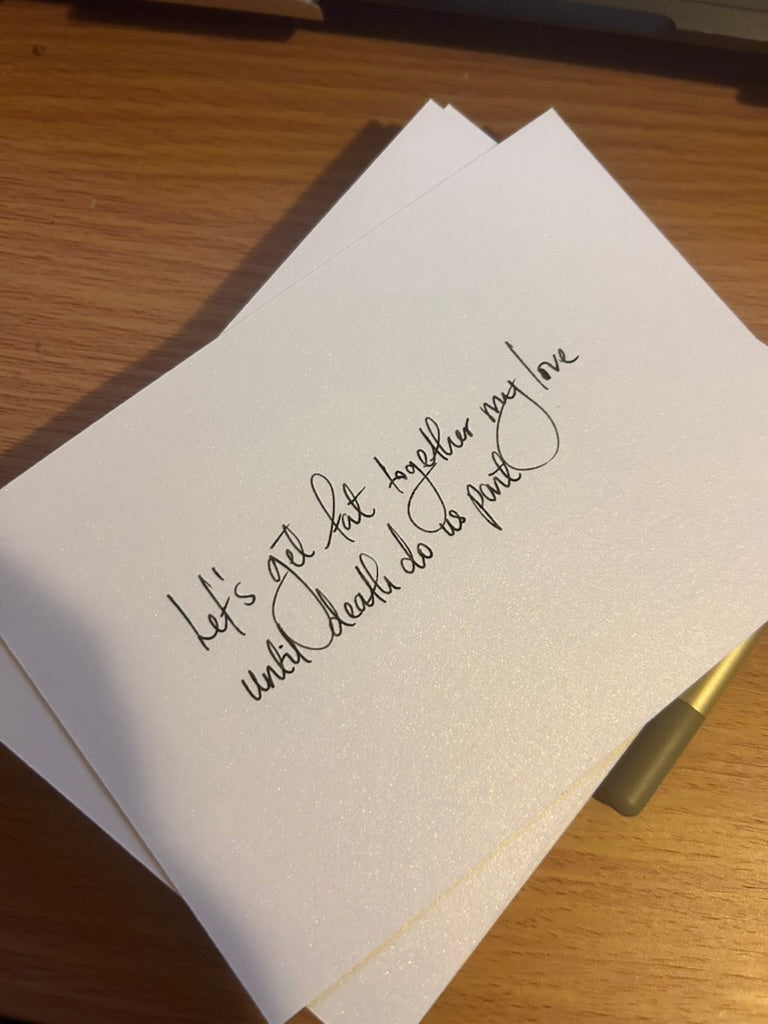 Let's get fat together my love
until death do us part